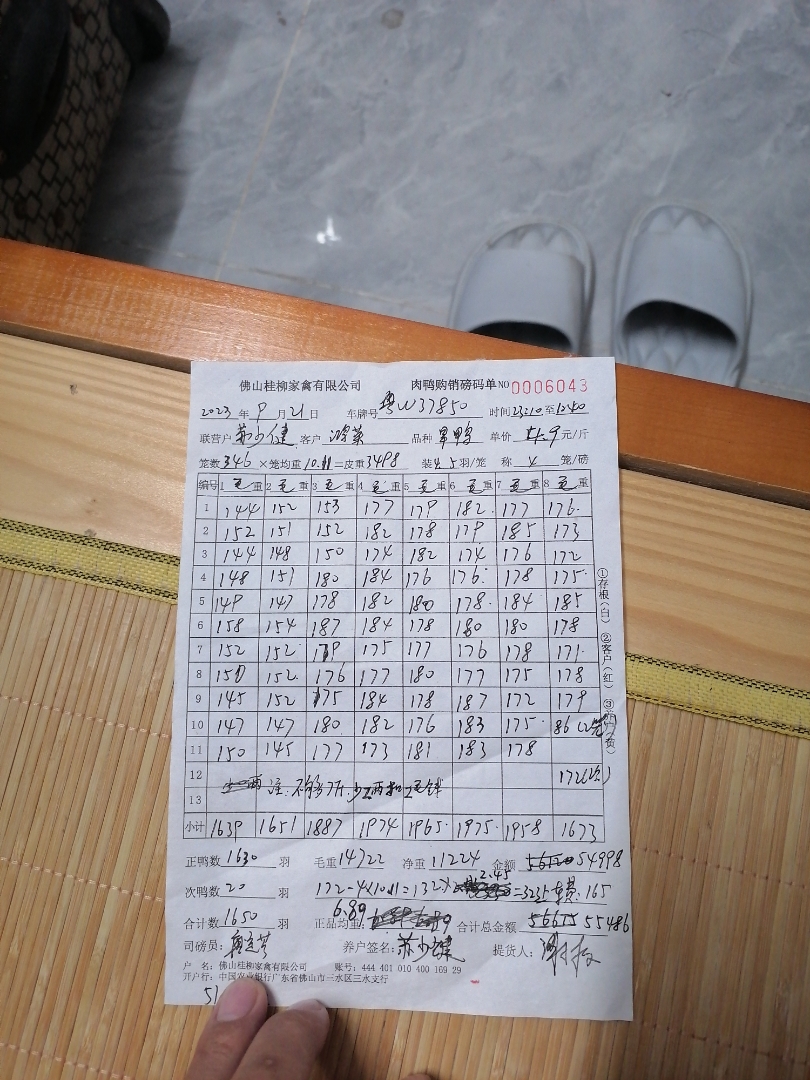 佛山桂柳家禽有限公司 肉鸭购销磅码单 NO 0006043
2023 年 9 月 21 日 车牌号 粤W37850 时间 23:10 至 12:40
联营户 苏少健 客户 鸿英 品种 单价 4.9 元/斤
笼数 346 ×笼均重 10.11 =皮重 3498 装 4.5 羽/笼 称 4 笼/磅
编号 1 毛 重 2 毛 重 3 毛 重 4 毛 重 5 毛 重 6 毛 重 7 毛 重 8 毛 重
1 144 152 153 177 179 182 177 176
2 152 151 152 182 178 179 185 173
3 144 148 150 174 182 174 176 172
4 148 151 180 184 176 176 178 175
5 149 147 178 182 180 178 184 185
6 158 154 187 184 178 180 180 178
7 152 152 179 175 177 176 178 171
8 150 152 176 177 180 177 175 178
9 145 152 175 184 178 187 172 179
10 147 147 180 182 176 183 175 86 (2笼)
11 150 145 177 173 181 183 178
12 注:不够7斤,少一两扣一毛钱 172(次)
13
小计 1639 1651 1887 1974 1965 1975 1958 1673
①存根(白) ②客户(红) ③养户(黄)
正鸭数 1630 羽 毛重 14722 净重 11224 金额 56120 54998
次鸭数 20 羽 172-4×10.11=132× 2.45 =323 165
合计数 1650 羽 正品均重: 6.89 合计总金额 55486
司磅员: 养户签名: 苏少健 提货人:
户 名: 佛山桂柳家禽有限公司 账号: 444 401 010 400 169 29
开户行: 中国农业银行广东省佛山市三水区三水支行
51